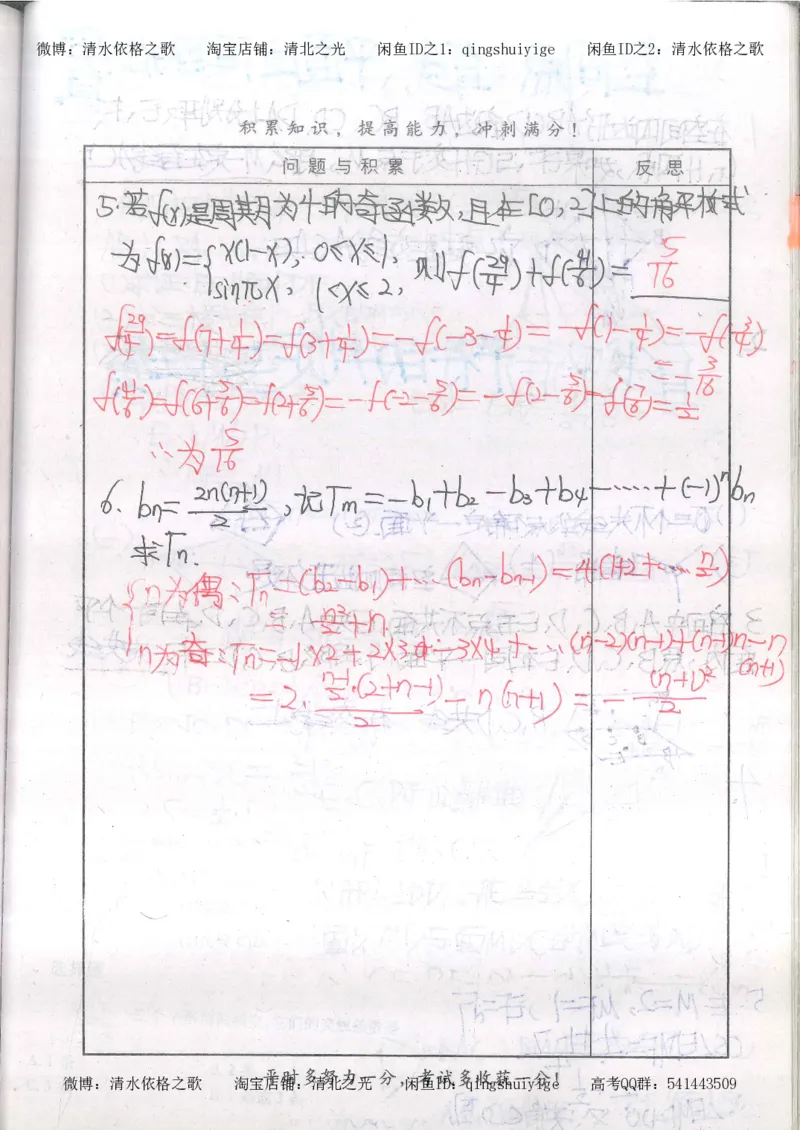 微博：清水依格之歌 淘宝店铺：清北之光 闲鱼ID之1：qingshuiyige 闲鱼ID之2：清水依格之歌
积累知识，提高能力，冲刺满分！
问题与积累 反思
5.若f(x)是周期为4的奇函数,且在[0,2]上的解析式
为f(x)={x(1-x), 0≤x≤1, sinπx, 1<x≤2, 则f(29/4)+f(41/6)= 5/16
f(29/4)=f(7+1/4)=f(3+1/4)=-f(-3-1/4)=-f(1-1/4)=-f(3/4)
=-3/16
f(41/6)=f(6+5/6)=f(2+5/6)=-f(-2-5/6)=-f(2-5/6)=-f(7/6)=1/2
∴为5/16
6. bn=2n(n+1)/2, 记Tm=-b1+b2-b3+b4-……+(-1)^n bn
求Tn.
{n为偶:Tn=(b2-b1)+…(bn-bn-1)=4(1+2+…n/2)
=n²/2+n.
n为奇:Tn=-1×2+2×3-3×4+…(n-2)(n-1)+(n-1)n-n(n+1)
=2·n-1/2·(2+n-1)/2-n(n+1)=-(n+1)²/2
平时多努力一分，考试多收获一分！
微博：清水依格之歌 淘宝店铺：清北之光 闲鱼ID：qingshuiyige 高考QQ群：541443509